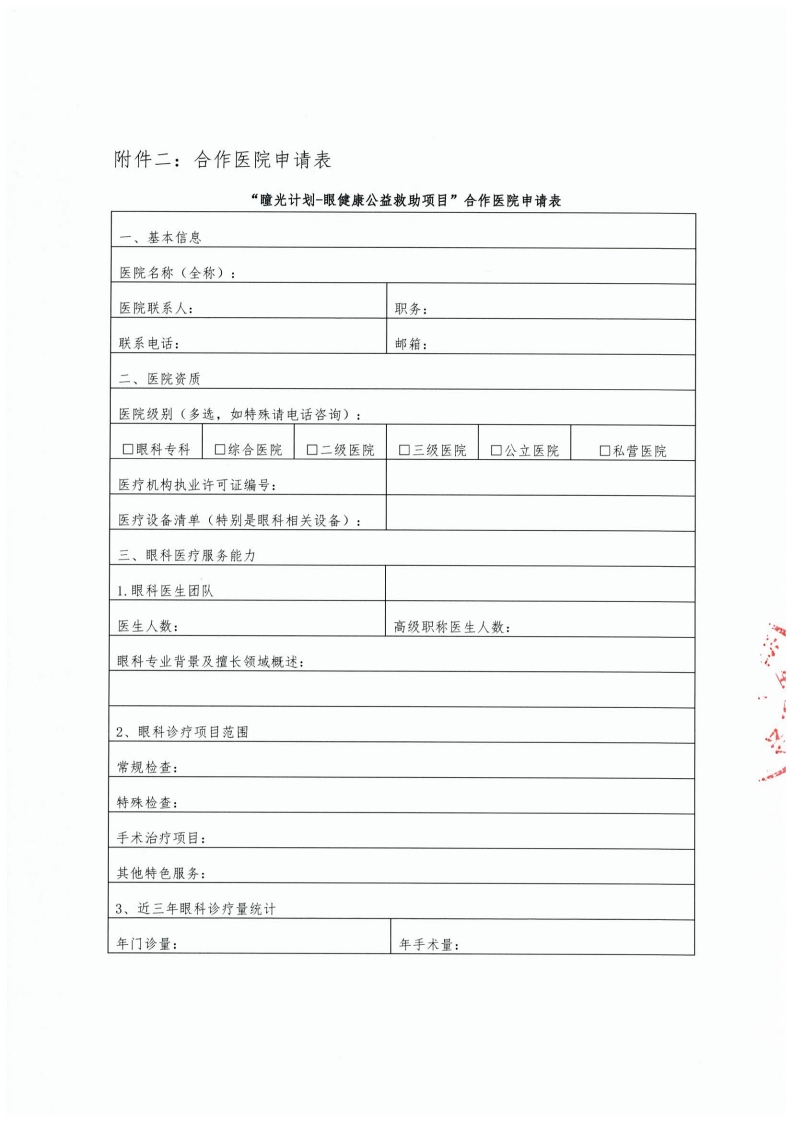 附件二：合作医院申请表
“瞳光计划-眼健康公益救助项目”合作医院申请表
一、基本信息
医院名称（全称）：
医院联系人： 职务：
联系电话： 邮箱：
二、医院资质
医院级别（多选，如特殊请电话咨询）：
□眼科专科 □综合医院 □二级医院 □三级医院 □公立医院 □私营医院
医疗机构执业许可证编号：
医疗设备清单（特别是眼科相关设备）：
三、眼科医疗服务能力
1.眼科医生团队
医生人数： 高级职称医生人数：
眼科专业背景及擅长领域概述：
2、眼科诊疗项目范围
常规检查：
特殊检查：
手术治疗项目：
其他特色服务：
3、近三年眼科诊疗量统计
年门诊量： 年手术量：